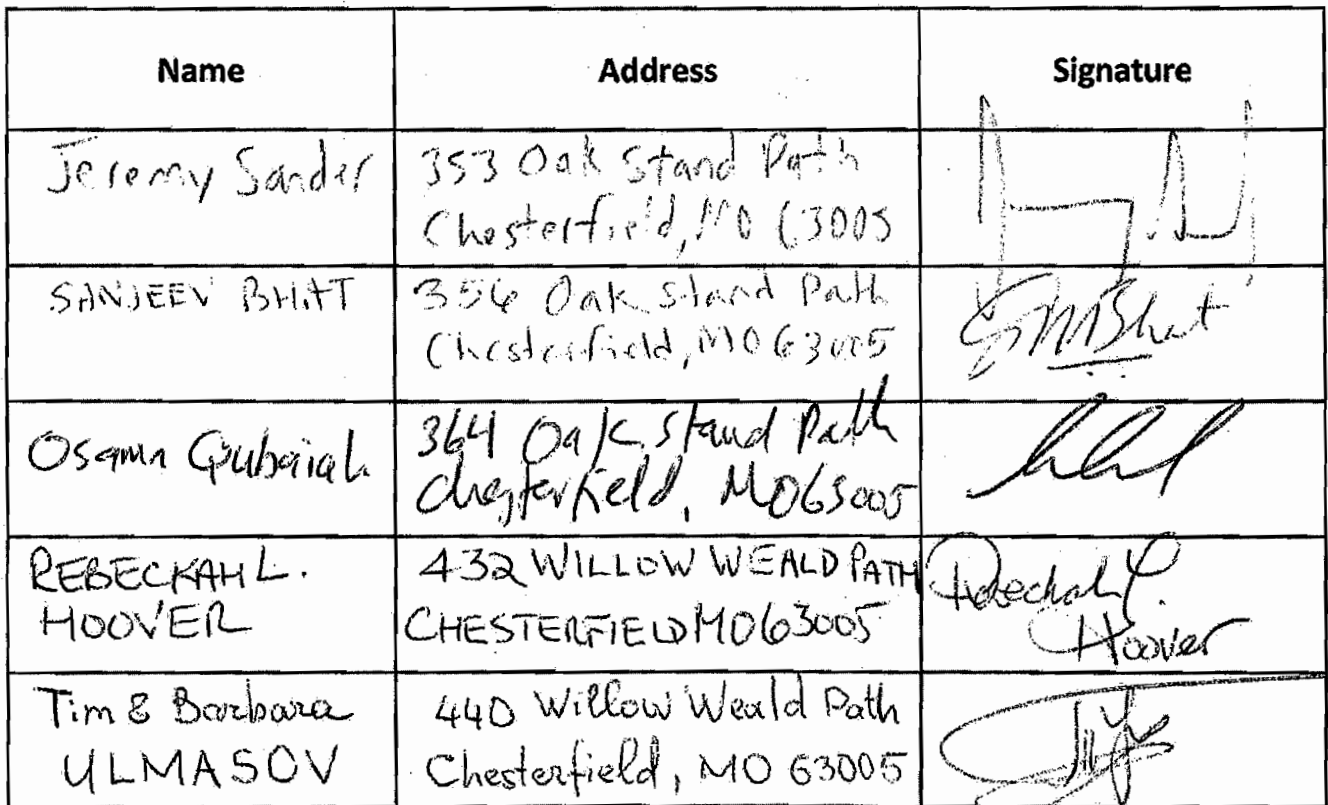 Name Address Signature
Jeremy Sander 353 Oak Stand Path
Chesterfield, MO 63005
SANJEEV BHATT 356 Oak Stand Path
Chesterfield, MO 63005
SMBhatt
Osama Qubaiah 364 Oak Stand Path
Chesterfield, MO 63005
REBECKAH L. 432 WILLOW WEALD PATH Rebeckah L.
HOOVER CHESTERFIELD MO 63005 Hoover
Tim & Barbara 440 Willow Weald Path
ULMASOV Chesterfield, MO 63005